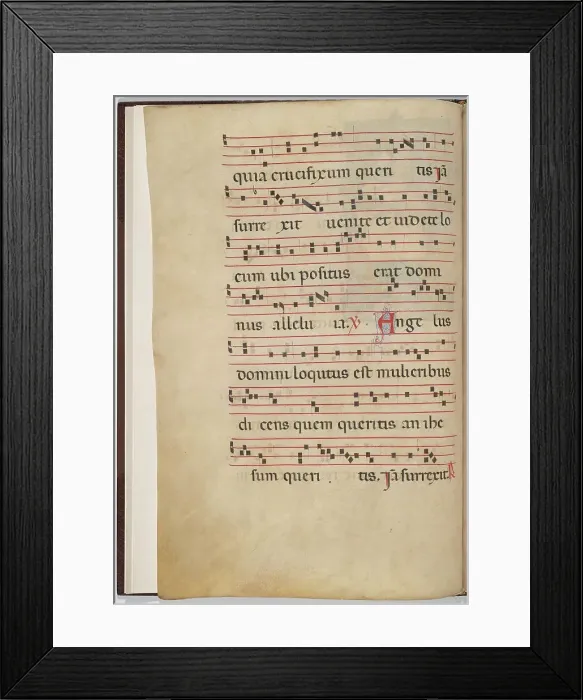 quia crucifixum queri tis Jā
surre xit uenite et uidete lo
cum ubi positus erat domi
nus allelu ia. V. Ange lus
domini loqutus est mulieribus
di cens quem queritis an ihe
sum queri . tis. Jā surrexit.